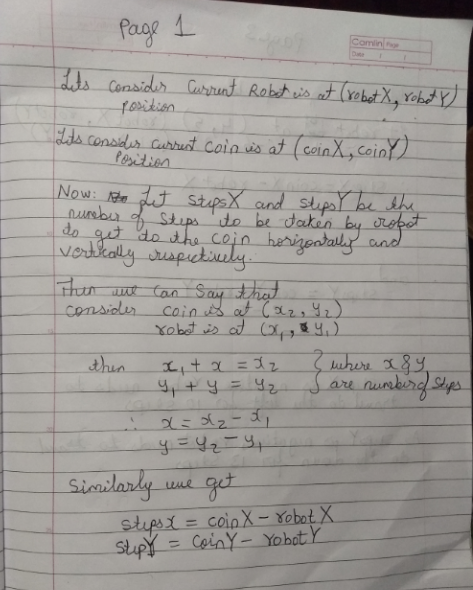 Page 1
Camlin Page
Date
Lets consider Current Robot is at (robotX, robotY)
position
Lets consider current coin is at (coinX, coinY)
Position
Now: Let stepsX and stepsY be the
number of steps to be taken by robot
to get to the coin horizontally and
vertically respectively.
Then we can say that
consider coin is at (x₂, y₂)
robot is at (x₁, y₁)
then x₁ + x = x₂ } where x & y
y₁ + y = y₂ } are number of steps
∴ x = x₂ - x₁
y = y₂ - y₁
Similarly we get
stepsx = coinX - robotX
stepY = CoinY - robotY